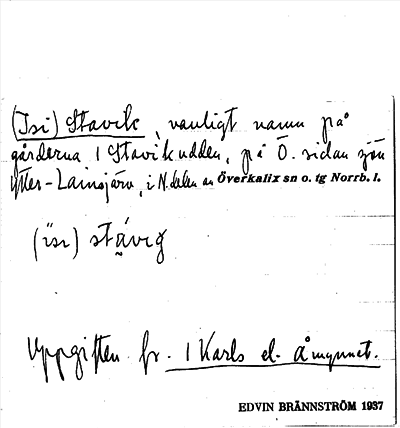 (Isi) Stavik, vanligt namn på
gårderna i Stavikudden, på Ö. sidan sjön
Ytter-Lainsjärv, i N. delen av Överkalix sn o. tg Norrb. l.
(isi) stávig
Uppgiften fr. 1 Karls el. Åmynnet.
EDVIN BRÄNNSTRÖM 1937